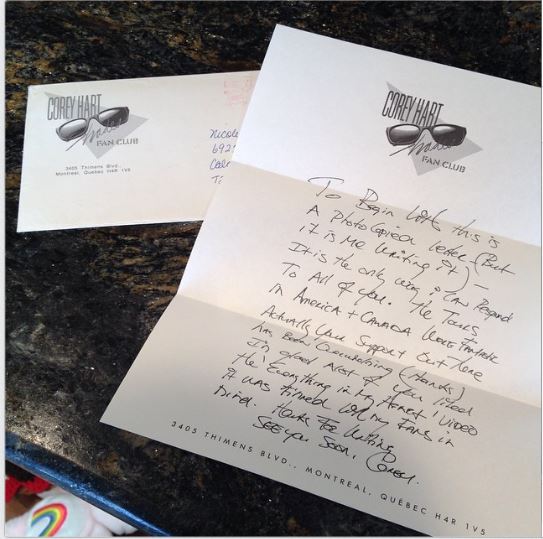 COREY HART
Shades
FAN CLUB
3405 Thimens Blvd.,
Montreal, Quebec H4R 1V5
Nicole
692
COREY HART
Shades
FAN CLUB
To Begin with this is
A Photocopied letter (But
it is me writing it) —
It is the only way i can Respond
To All of you. The Tours
in America + Canada were fantastic
Actually your Support out there
has been overwhelming (thanks)
I'm glad most of you liked
the "Everything in my Heart" video
it was filmed with my fans in
mind. Thanks for writing
See you soon, Corey.
3405 THIMENS BLVD., MONTREAL, QUÉBEC H4R 1V5